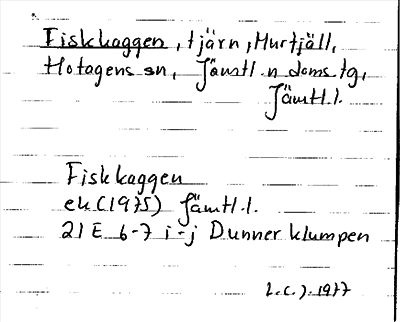 Fiskkaggen, tjärn, Murfjäll,
Hotagens sn, Jämtl. n doms tg,
Jämtl. l.
Fiskkaggen
ek (1975) Jämtl. l.
21 E 6-7 i-j Dunnerklumpen
L.C.J. 1977